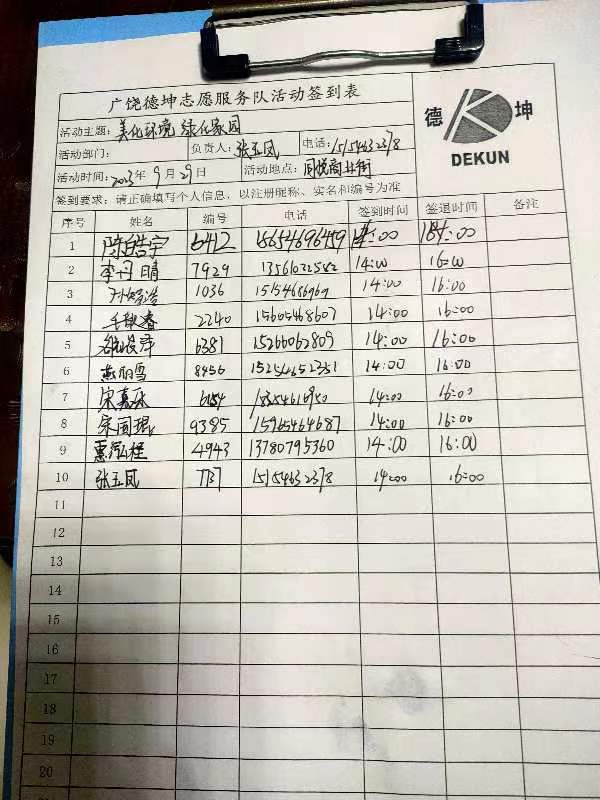 广饶德坤志愿服务队活动签到表
德 坤
DEKUN
活动主题: 美化环境 绿化家园
活动部门: 负责人: 张玉凤 电话: 15154632378
活动时间: 2023年 9月 29日 活动地点: 同悦商业街
签到要求: 请正确填写个人信息, 以注册昵称、实名和编号为准
序号 姓名 编号 电话 签到时间 签退时间 备注
1 陈皓宇 6412 14:00
2 李丹晴 7929 13561022582 14:00 16:00
3 1036 14:00 16:00
4 2240 15605468607 14:00 16:00
5 6381 15266062809 14:00 16:00
6 燕丽雪 8456 15254652351 14:00 16:00
7 宋嘉乐 14:00 16:00
8 宋国琨 9385 15965464687 14:00 16:00
9 惠泓程 4943 13780795360 14:00 16:00
10 张玉凤 7737 15154632378 14:00 16:00
11
12
13
14
15
16
17
18
19
20